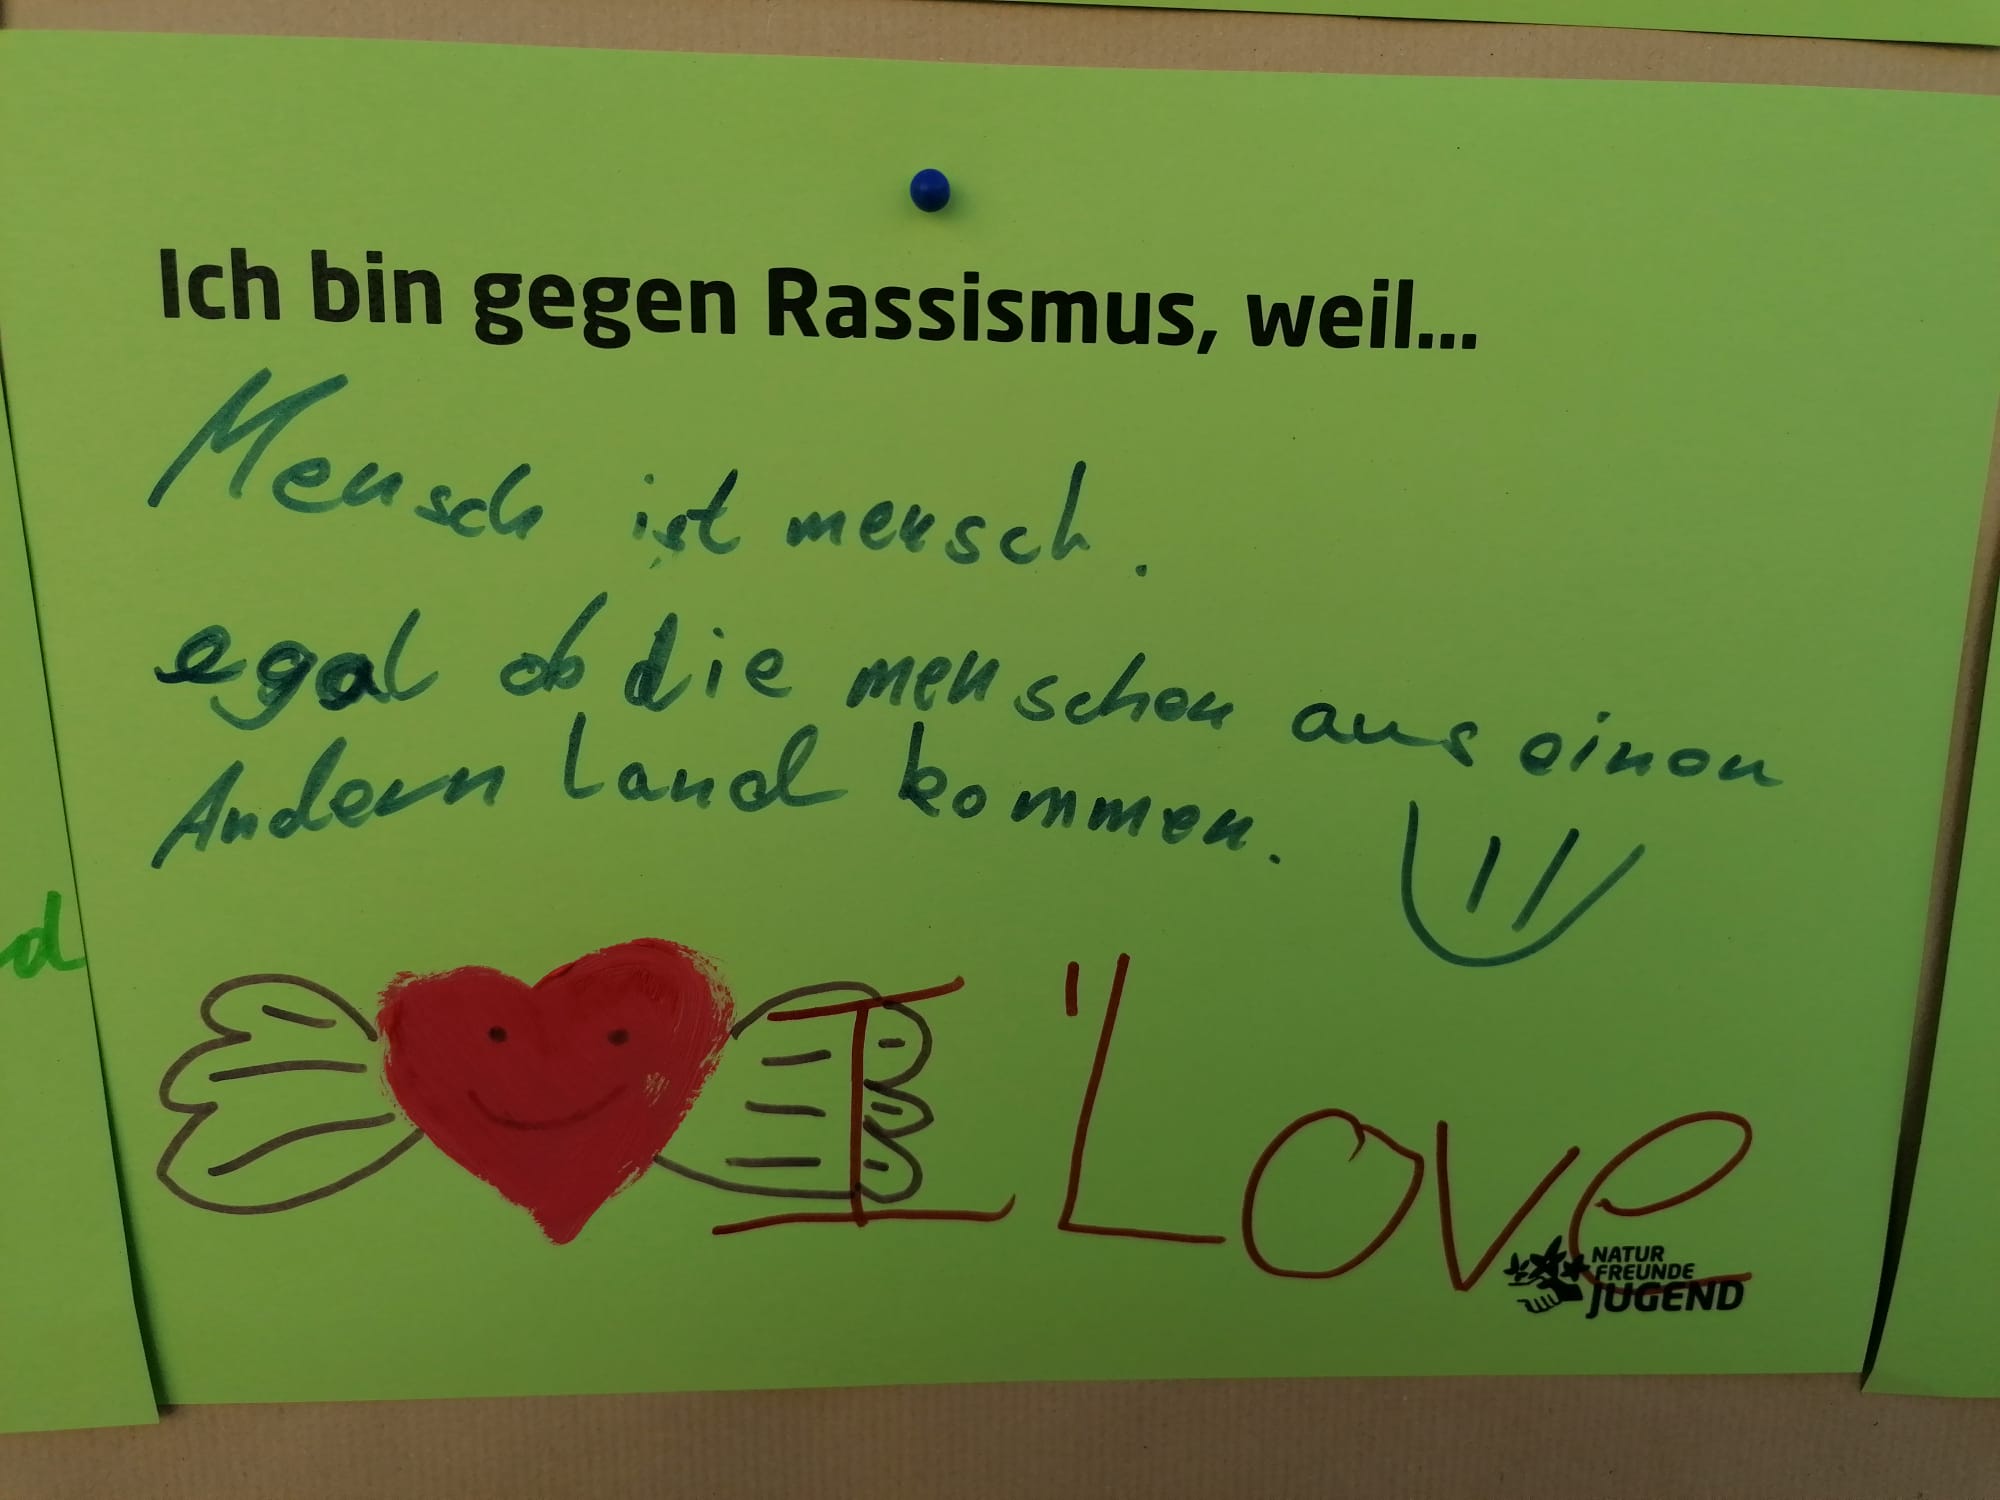 Ich bin gegen Rassismus, weil...
Mensch ist mensch.
egal ob die menschen aus einen
Andern Land kommen.
d
I 'Love
NATUR
FREUNDE
JUGEND